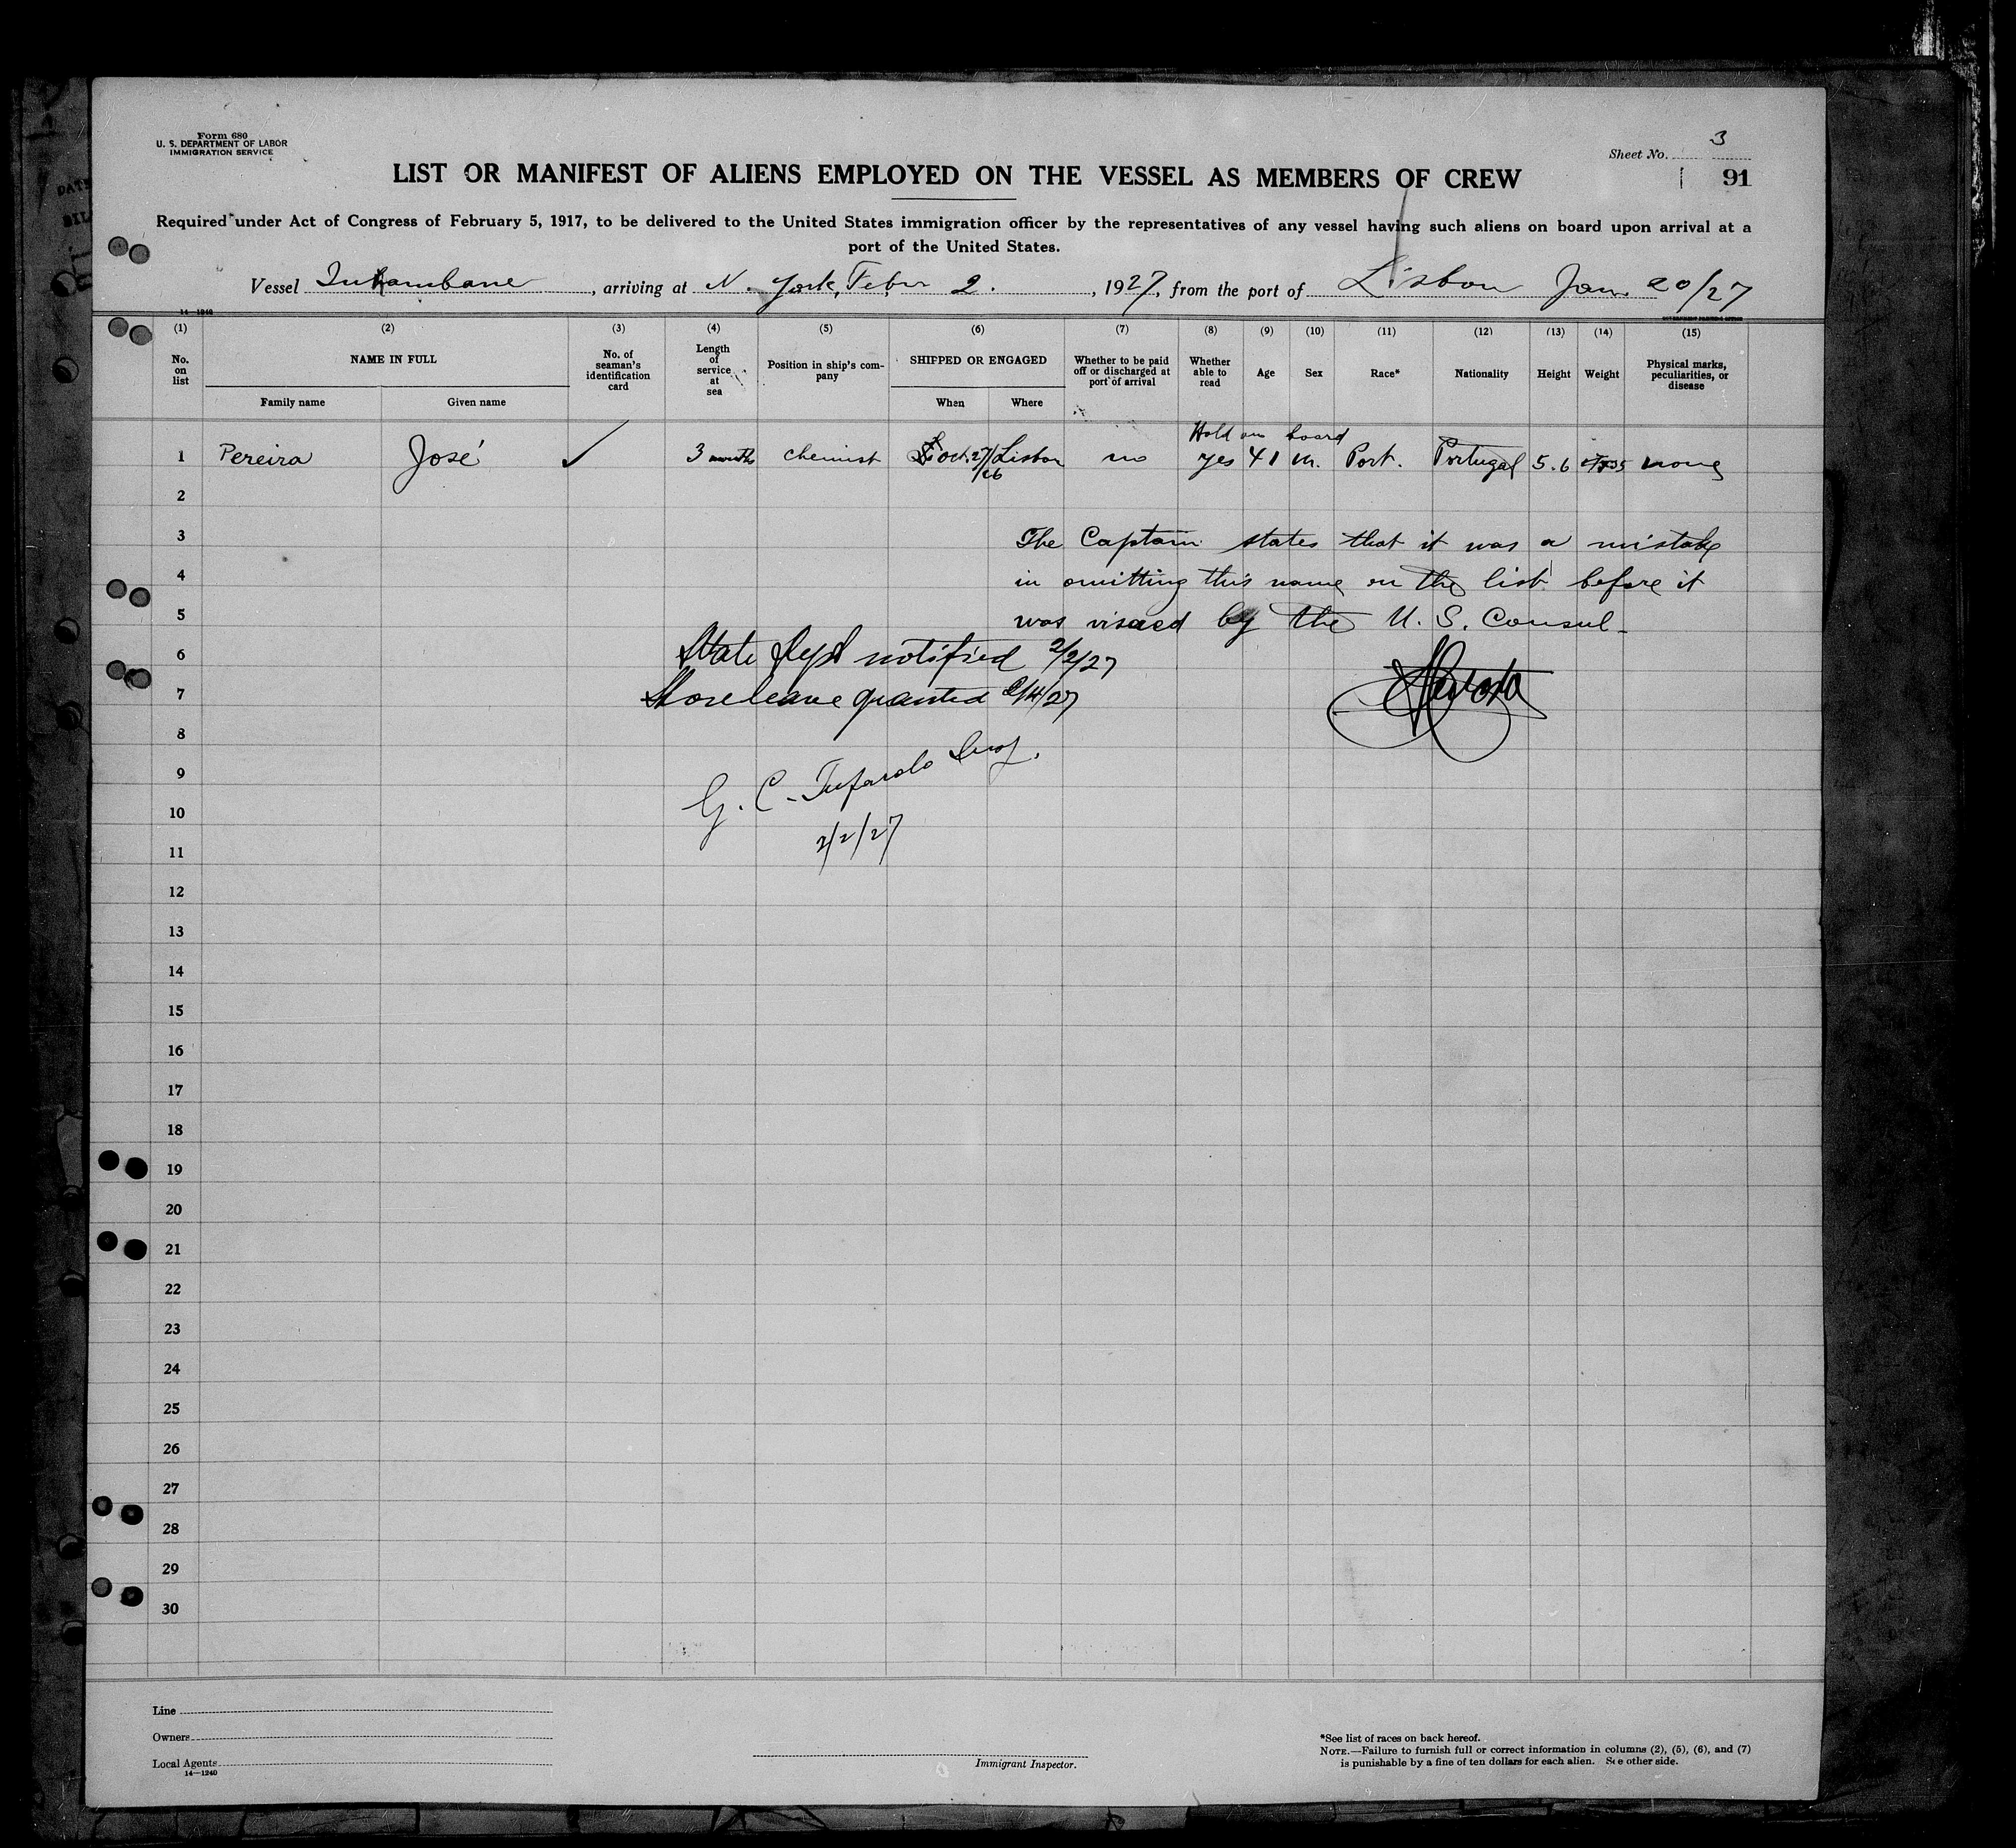 Form 680
U. S. DEPARTMENT OF LABOR
IMMIGRATION SERVICE
Sheet No. 3
91
LIST OR MANIFEST OF ALIENS EMPLOYED ON THE VESSEL AS MEMBERS OF CREW
Required under Act of Congress of February 5, 1917, to be delivered to the United States immigration officer by the representatives of any vessel having such aliens on board upon arrival at a
port of the United States.
Vessel Inhambane, arriving at N. York, Febr 2., 1927, from the port of Lisbon Jan. 20/27
14-1240
GOVERNMENT PRINTING OFFICE
(1) (2) (3) (4) (5) (6) (7) (8) (9) (10) (11) (12) (13) (14) (15)
No. on list NAME IN FULL Family name Given name No. of seaman's identification card Length of service at sea Position in ship's company SHIPPED OR ENGAGED When Where Whether to be paid off or discharged at port of arrival Whether able to read Age Sex Race* Nationality Height Weight Physical marks, peculiarities, or disease
Hold on board
1 Pereira José ✓ 3 months chemist Oct. 27/26 Lisbon no yes 41 m. Port. Portugal 5.6 none
2
3 The Captain states that it was a mistake
4 in omitting this name on the list before it
5 was visaed by the U. S. Consul -
6 State Dept notified 2/2/27
7 Shore leave granted 2/4/27
8
9 G. C. Tufarolo Insp.
10
11 2/2/27
12
13
14
15
16
17
18
19
20
21
22
23
24
25
26
27
28
29
30
Line
Owners
Local Agents
14-1240
Immigrant Inspector.
*See list of races on back hereof.
NOTE.—Failure to furnish full or correct information in columns (2), (5), (6), and (7)
is punishable by a fine of ten dollars for each alien. See other side.